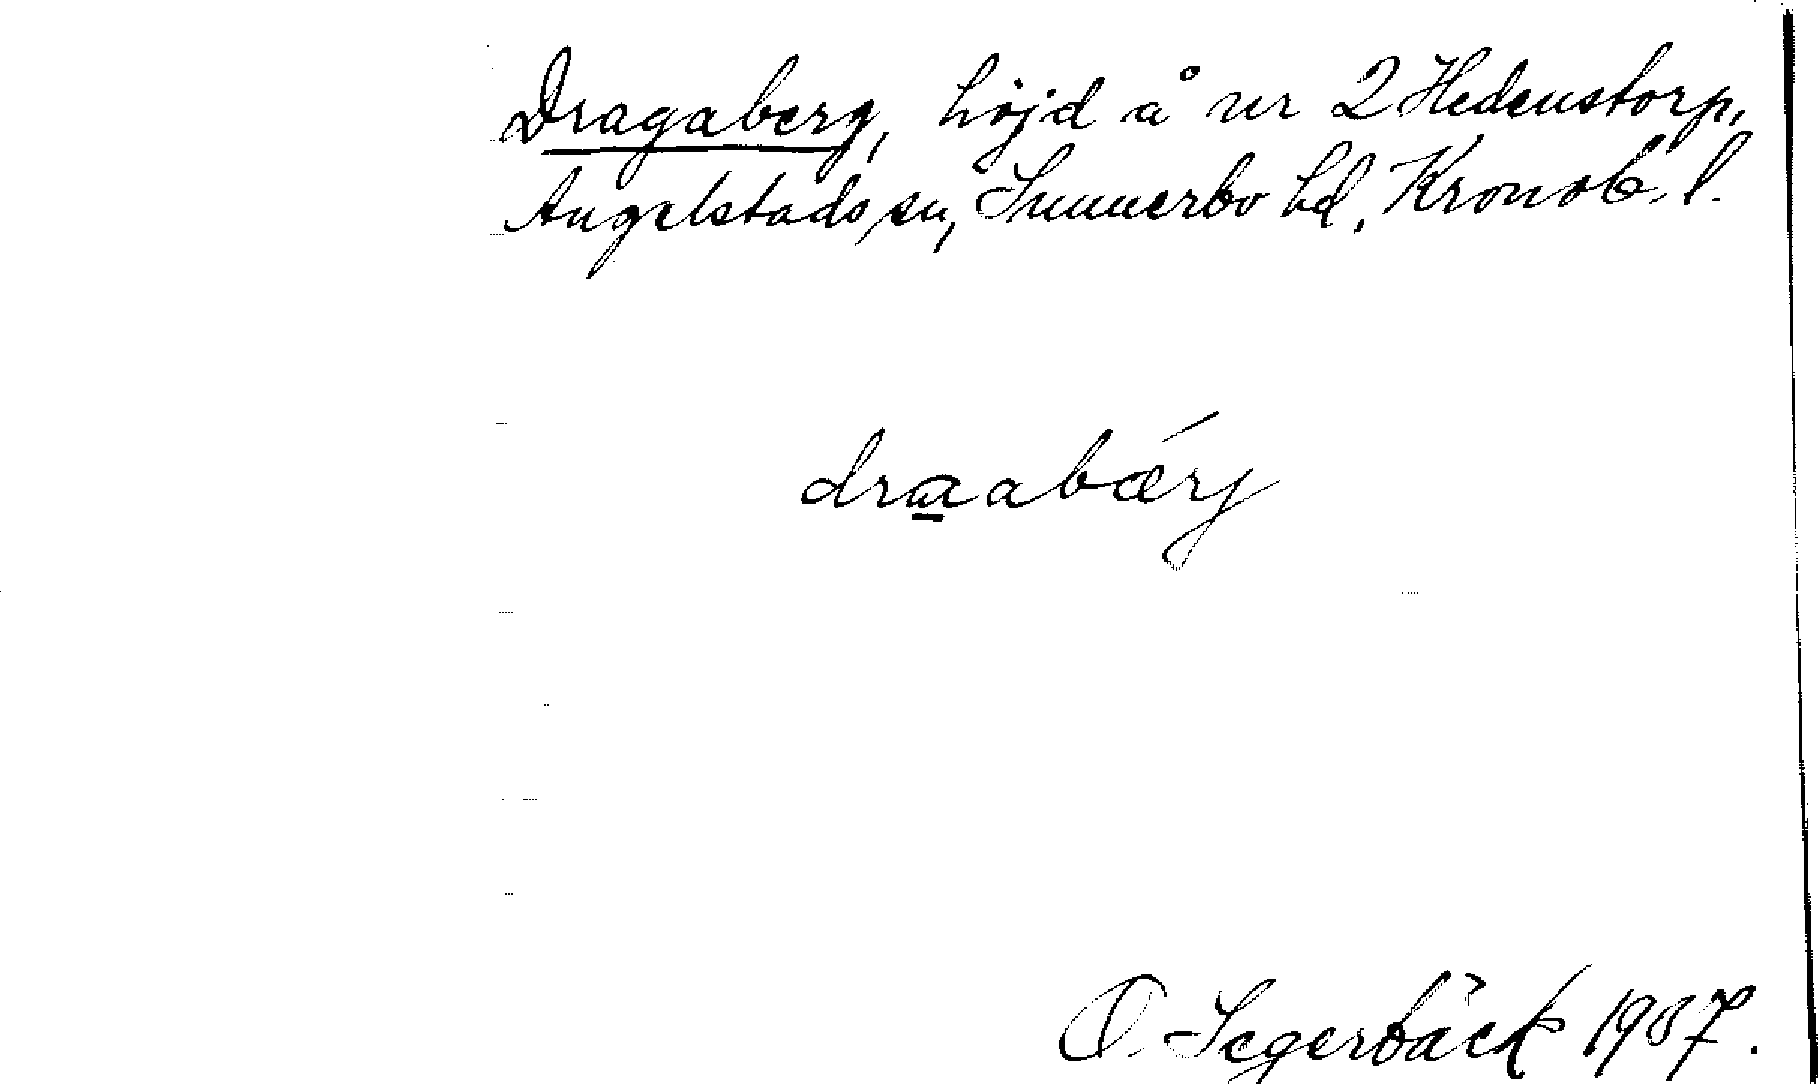 Dragaberg, höjd å nr 2 Hedenstorp,
Angelstads sn, Sunnerbo hd, Kronob. l.
dra̲abǽrj
O. Segerbäck 1937.